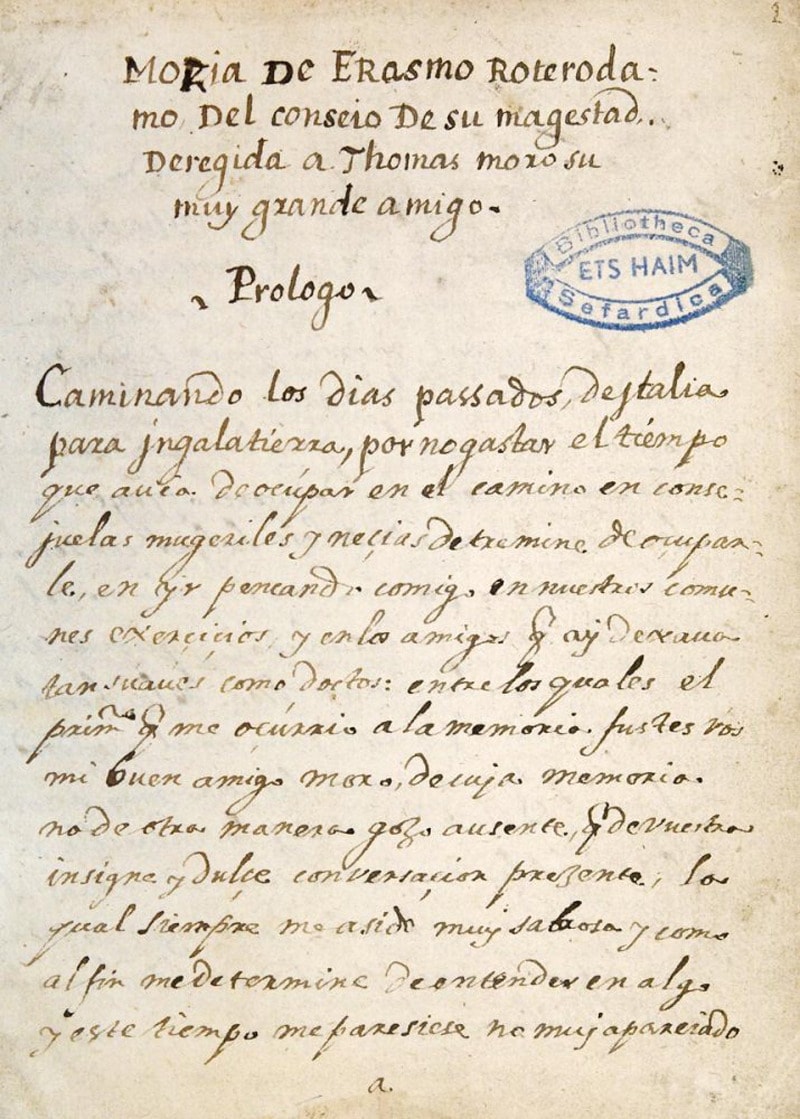 1
Moria De Erasmo Roteroda-
mo Del conseio De su magestad..
Deregida a Thomas moro su
muy grande amigo.
Bibliotheca
ETS HAIM
Sefardica
Prologo
Caminando los dias passados, de Italia
para jngalatierra, por no gastar el tiempo
que auia de ocupar en el camino en conse-
juelas mugeriles y neçias detremine de ocupar-
le, en yr pençando comigo en nuestros comu-
nes exerçiçios, y en los amigos q̃ ay dexaua
tan suaues como doctos: entre los quales el
primo q̃ me ocurrio a la memoria fustes vos
mi buen amigo moro, de cuja memoria
no de otra manera gozo ausente, q̃ de vuestra
insigne y dulçe conversaçion prezente, la
qual siempre me a sido muy sabrosa y como
al fin me determine de entender en algo
y este tiempo me paresiese no muj apareiado
a.